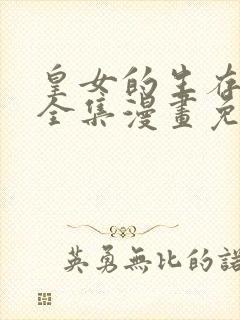 皇女的生存
全集漫畫免
英勇無比的諾